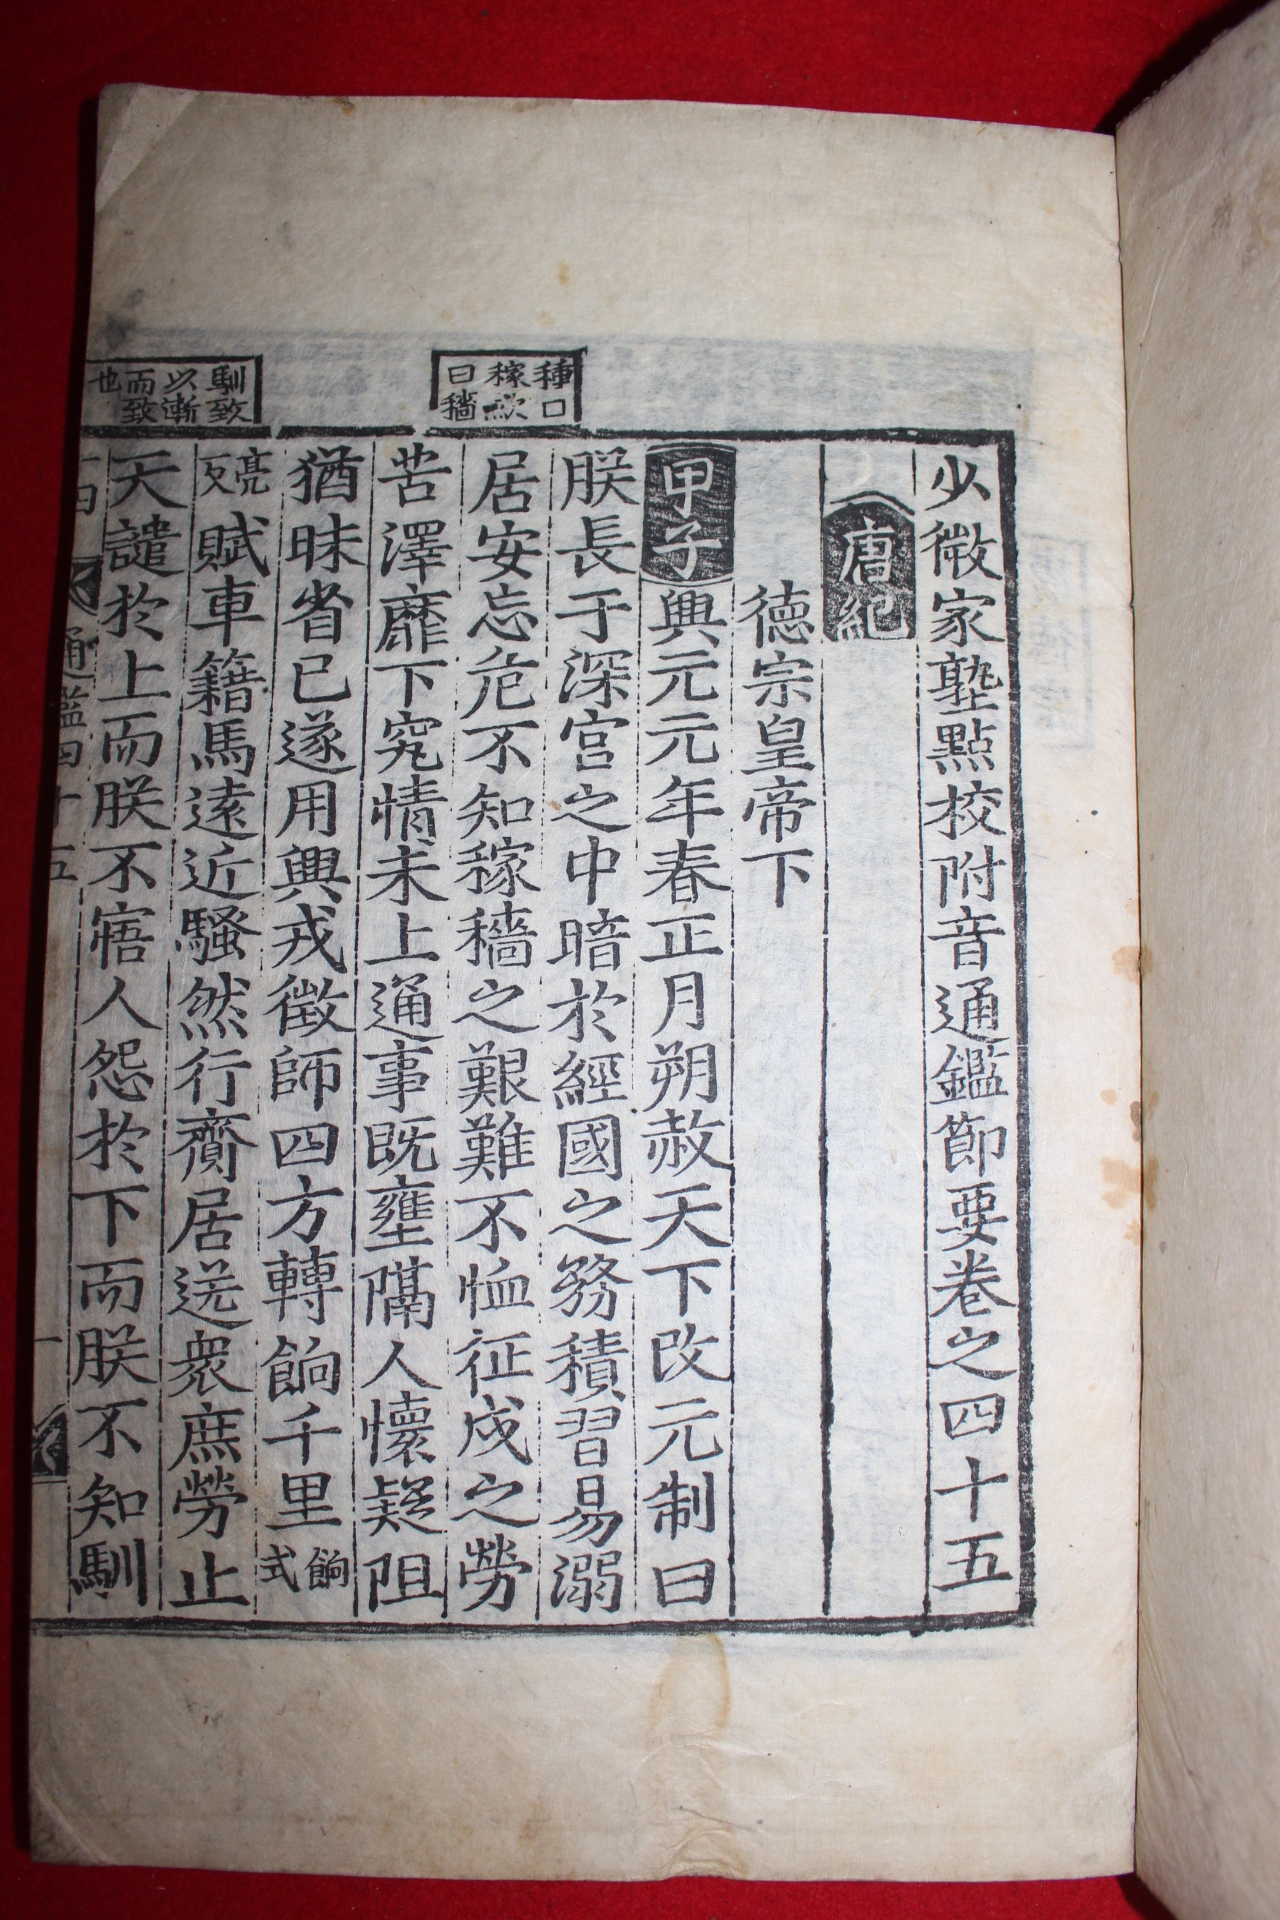 少微家塾點校附音通鑑節要卷之四十五
唐紀
德宗皇帝下
甲子興元元年春正月朔赦天下改元制曰
朕長于深宮之中暗於經國之務積習易溺
居安忘危不知稼穡之艱難不恤征戍之勞
苦澤靡下究情未上通事旣壅隔人懷疑阻
猶昧省已遂用興戎徵師四方轉餉千里餉式
亮反賦車籍馬遠近騷然行齎居送衆庶勞止
天譴於上而朕不寤人怨於下而朕不知馴
種曰
稼斂
曰穡
馴致
以漸
而致
也
通鑑四十五
一